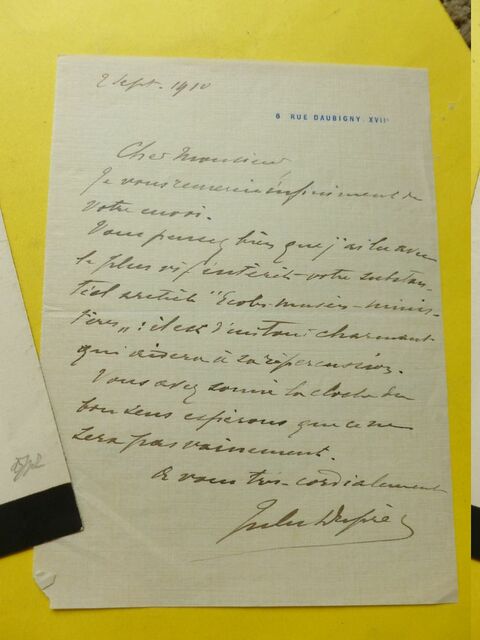 2 Sept. 1910
6 RUE DAUBIGNY. XVIIe
Cher Monsieur
Je vous remercie infiniment de
votre envoi.
Vous pensez bien que j'ai lu avec
le plus vif intérêt votre substan-
tiel article "Ecoles-musées-minis-
tères" : il est d'un ton charmant
qui aidera à sa répercussion.
Vous avez sonné la cloche du
bon sens espérons que ce ne
sera pas vainement.
A vous très cordialement
Jules